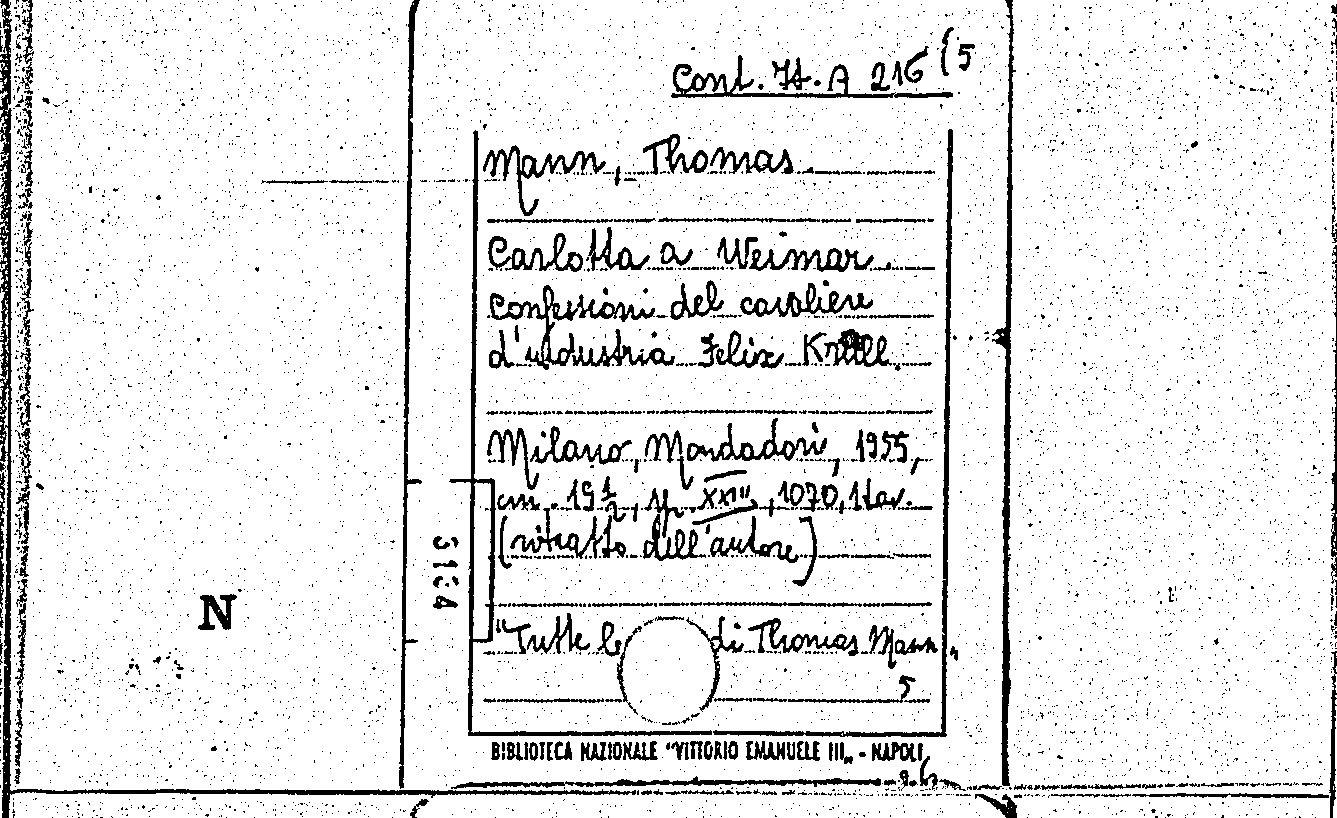 Cont. It. A 216 (5
Mann, Thomas.
Carlotta a Weimar.
Confessioni del cavaliere
d'industria Felix Krull.
Milano, Mondadori, 1955,
cm. 19 1/2, pp. XXIII, 1070, 1 tav.
(ritratto dell'autore)
3184
N
"Tutte le di Thomas Mann"
5
BIBLIOTECA NAZIONALE "VITTORIO EMANUELE III„ - NAPOLI